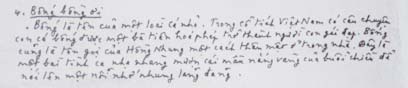 4. Bống bồng ơi
. Bống là tên của một loài cá nhỏ. Trong cổ tích Việt Nam có câu chuyện
con cá bống được một bà tiên hoá phép trở thành người con gái đẹp. Bống
cũng là tên gọi của Hồng Nhung một cách thân mật ở trong nhà. Đây là
một bài tình ca nho nhỏ mượn cái màu nắng vàng của buổi chiều để
nói lên một nỗi nhớ nhung lãng đãng.